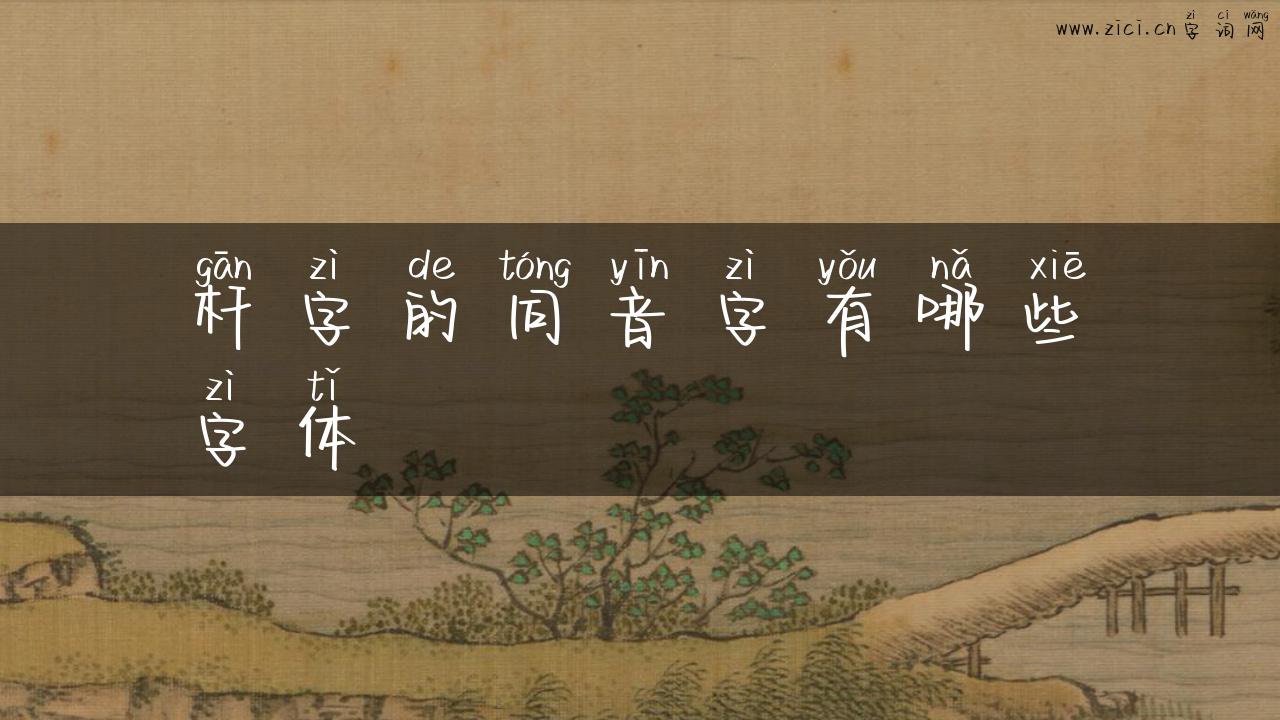 zì cí wǎng
www.zici.cn 字 词 网
gān zì de tóng yīn zì yǒu nǎ xiē
杆 字 的 同 音 字 有 哪 些
zì tǐ
字 体